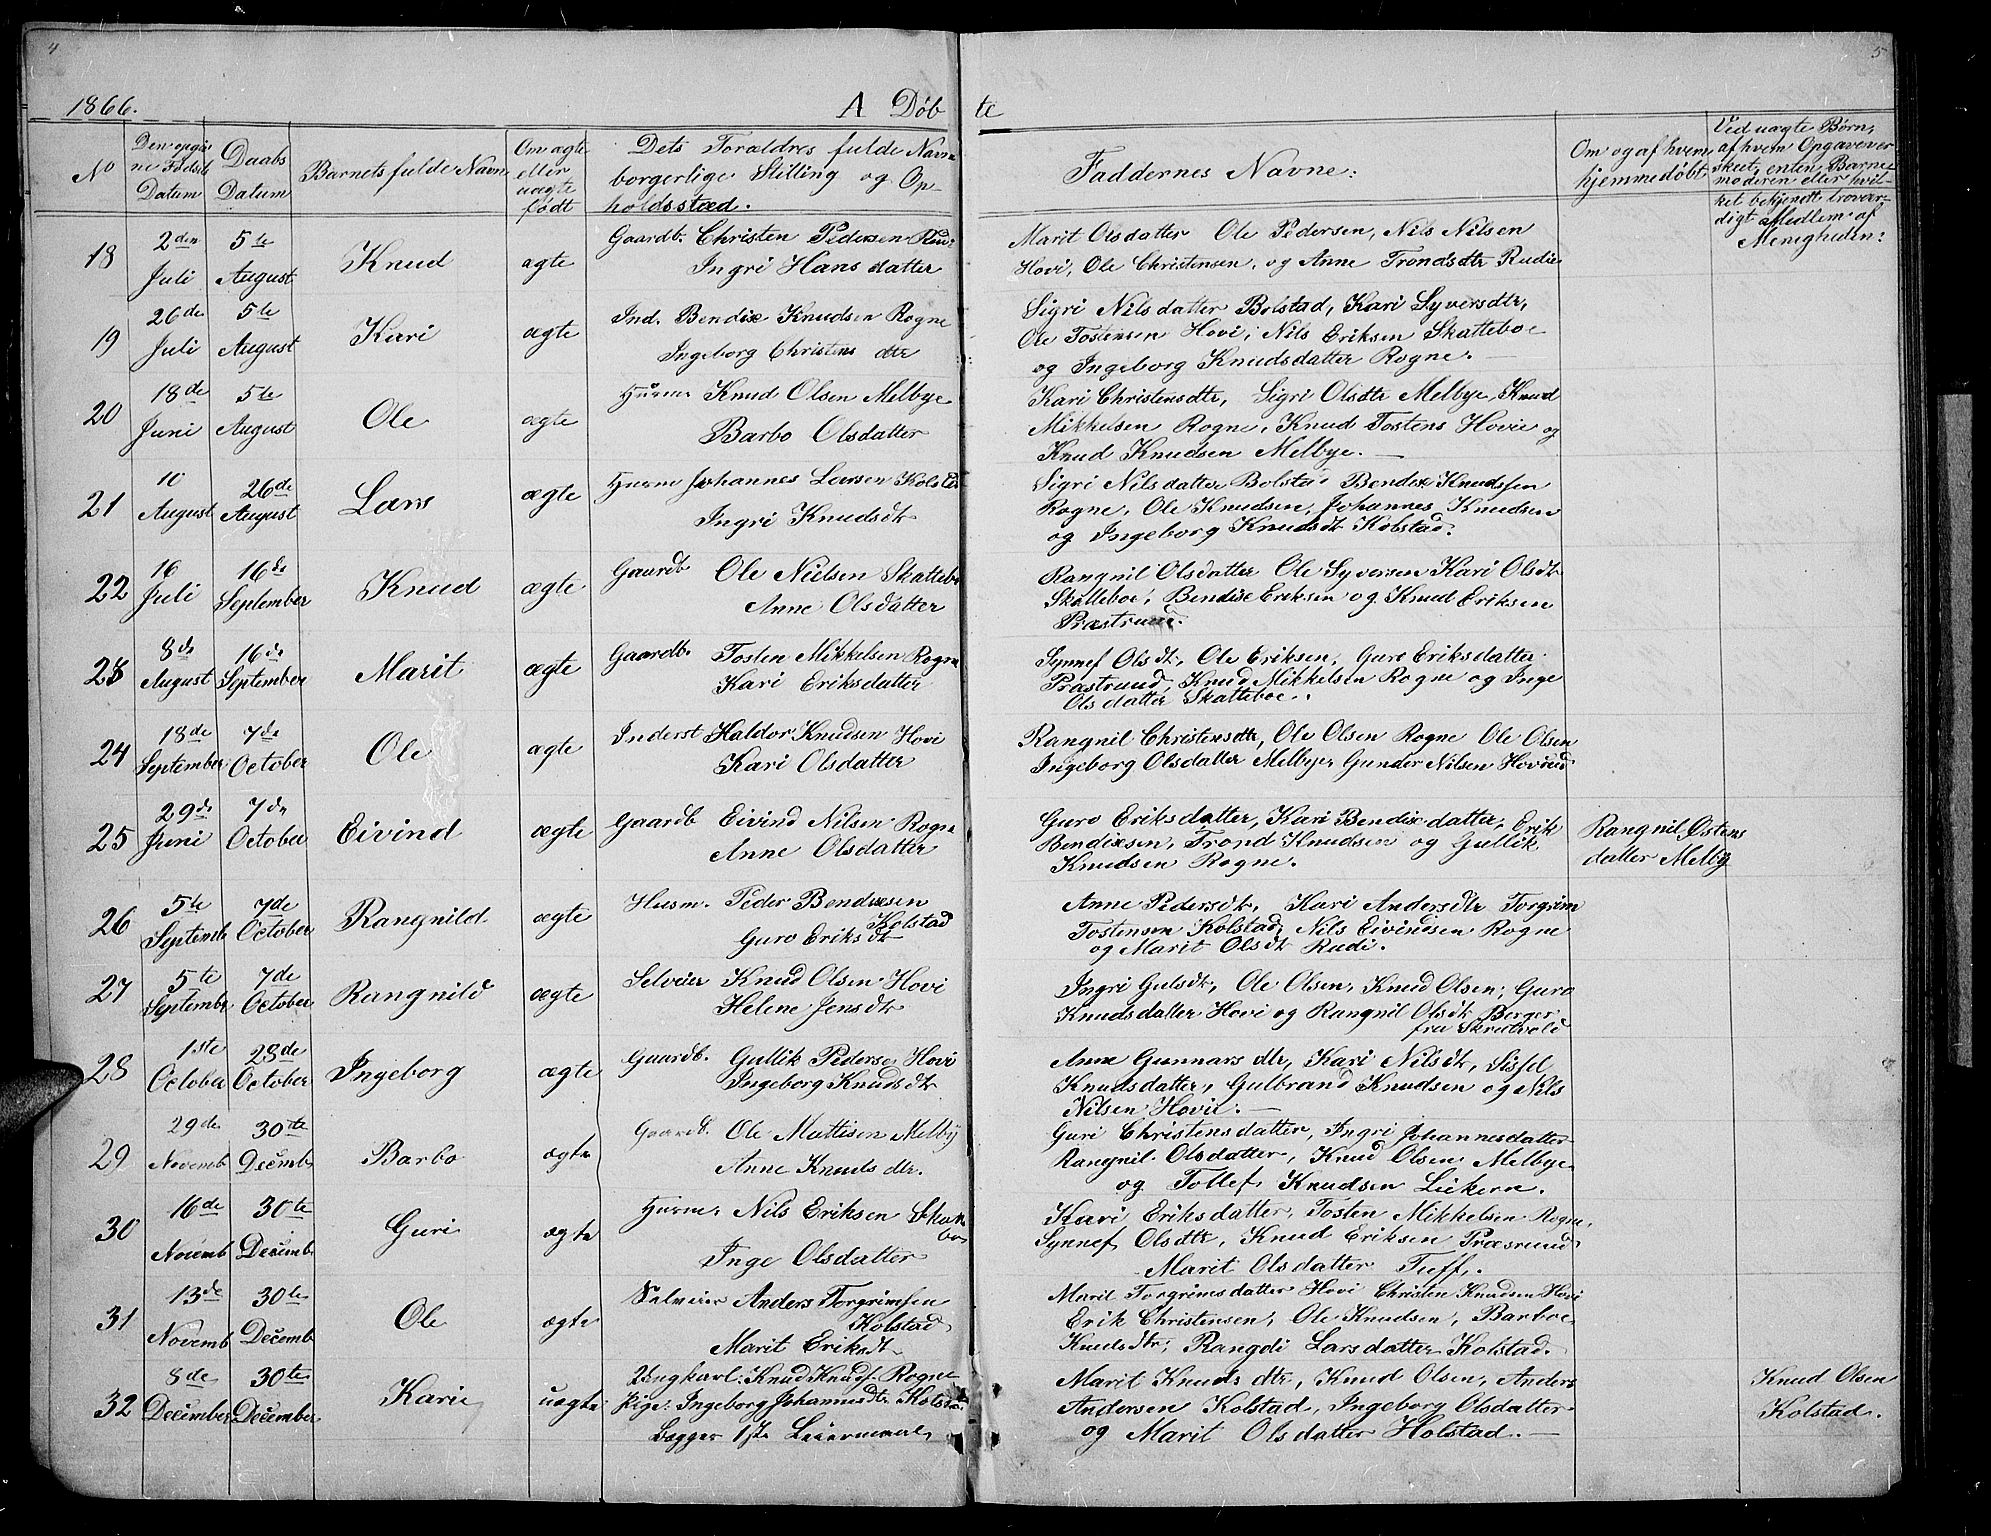 4
5
1866.
A Døb
te
No
Den opgiv
ne Fødsels
Datum
Daabs
Datum
Barnets fulde Navn
Om ægte
eller
uægte
født
Dets Forældres fulde Navne
borgerlige Stilling og Op-
holdssted.
Faddernes Navne:
Om og af hvem
hjemmedøbt
Ved uægte Børn,
af hvem Opgaven er
skeet, enten Barne
moderen eller hvil-
ket bekjendt trovær-
digt Medlem af
Menigheden:
18
2den
Juli
5te
August
Knud
ægte
Gaardb. Christen Pedersen
Ingri Hansdatter
Marit Olsdatter Ole Pedersen, Nils Nilsen
Hovi, Ole Christensen, og Anne Trondsdtr Rudie
19
26de
Juli
5te
August
Kari
ægte
Ind. Bendix Knudsen Rogne
Ingeborg Christensdtr
Sigri Nilsdatter Bolstad, Kari Syversdtr,
Ole Tostensen Hovi, Nils Eriksen Skatteboe
og Ingeborg Knudsdatter Rogne.
20
18de
Juni
5te
August
Ole
ægte
Husm Knud Olsen Melbye
Barbo Olsdatter
Kari Christensdtr, Sigri Olsdtr Melbye, Knud
Mikkelsen Rogne, Knud Tostens Hovie og
Knud Knudsen Melbye.
21
10
August
26de
August
Lars
ægte
Husm Johannes Larsen Kolstad
Ingri Knudsdt
Sigri Nilsdatter Bolstad Bendix Knudsen
Rogne, Ole Knudsen, Johannes Knudsen
og Ingeborg Knudsdt Kolstad.
22
16
Juli
16de
September
Knud
ægte
Gaardb Ole Nielsen Skattebo
Anne Olsdatter
Rangnil Olsdatter Ole Syversen Kari Olsdt
Skatteboe, Bendix Eriksen og Knud Eriksen
Præstrud.
23
8de
August
16de
September
Marit
ægte
Gaardb. Tosten Mikkelsen Rogne
Kari Eriksdatter
Synnef Olsdt, Ole Eriksen, Guro Eriksdatter
Præstruud, Knud Mikkelsen Rogne og Inge
Olsdatter Skatteboe.
24
18de
September
7de
October
Ole
ægte
Inderst Haldor Knudsen Hovi
Kari Olsdatter
Rangnil Christensdtr, Ole Olsen Rogne Ole Olsen
Ingeborg Olsdatter Melbye Gunder Nilsen Hoviud
25
29de
Juni
7de
October
Eivind
ægte
Gaardb Eivind Nilsen Rogne
Anne Olsdatter
Guro Eriksdatter, Kari Bendixdatter, Erik
Bendixsen, Trond Knudsen og Gullik
Knudsen Rogne.
Rangnil Østens
datter Melby
26
5te
Septemb
7de
October
Rangnild
ægte
Husm. Peder Bendixsen
Kolstad
Guro Eriksdt
Anne Pedersdt, Kari Andersdtr Torgrim
Tostensen Kolstad, Nils Eivindsen Rogne
og Marit Olsdt Rudi.
27
5te
September
7de
October
Rangnild
ægte
Selveier Knud Olsen Hovi
Helene Jensdt
Ingri Gulsdt, Ole Olsen, Knud Olsen, Guro
Knudsdatter Hovi og Rangnil Olsdt Berger
fra Skrutvold
28
1ste
October
28de
October
Ingeborg
ægte
Gaardb. Gullik Pederse Hovi
Ingeborg Knudsdt
Anne Gunnarsdtr, Kari Nilsdt, Sissel
Knudsdatter, Gulbrand Knudsen og Nils
Nilsen Hovie.
29
29de
Novemb
30te
Decemb
Barbo
ægte
Gaardb. Ole Mattisen Melby
Anne Knudsdtr.
Guri Christensdatter, Ingri Johannesdatter
Rangnil Olsdatter, Knud Olsen Melbye
og Tollef Knudsen Liekern.
30
16de
Novemb
30te
Decemb
Guri
ægte
Husm Nils Eriksen Skatt
boe
Inge Olsdatter
Kari Eriksdatter, Tosten Mikkelsen Rogne,
Synnef Olsdtr, Knud Eriksen Præsruud
Marit Olsdatter Tuff.
31
13de
Novemb
30te
Decemb
Ole
ægte
Selveier Anders Torgrimsen
Kolstad
Marit Eriksdt
Marit Torgrimsdatter Hovi Christen Knudsen Hovi
Erik Christensen, Ole Knudsen, Barboe
Knudsdtr, Rangdi Larsdatter Kolstad.
32
8de
December
30te
December
Kari
uægte
Ungkarl. Knud Knuds. Rogne
Pige. Ingeborg Johannesdtr Kolstad
Begges 1ste Leiermaal
Marit Knudsdtr, Knud Olsen, Anders
Andersen Kolstad, Ingeborg Olsdatter
og Marit Olsdatter Holstad.
Knud Olsen
Kolstad.